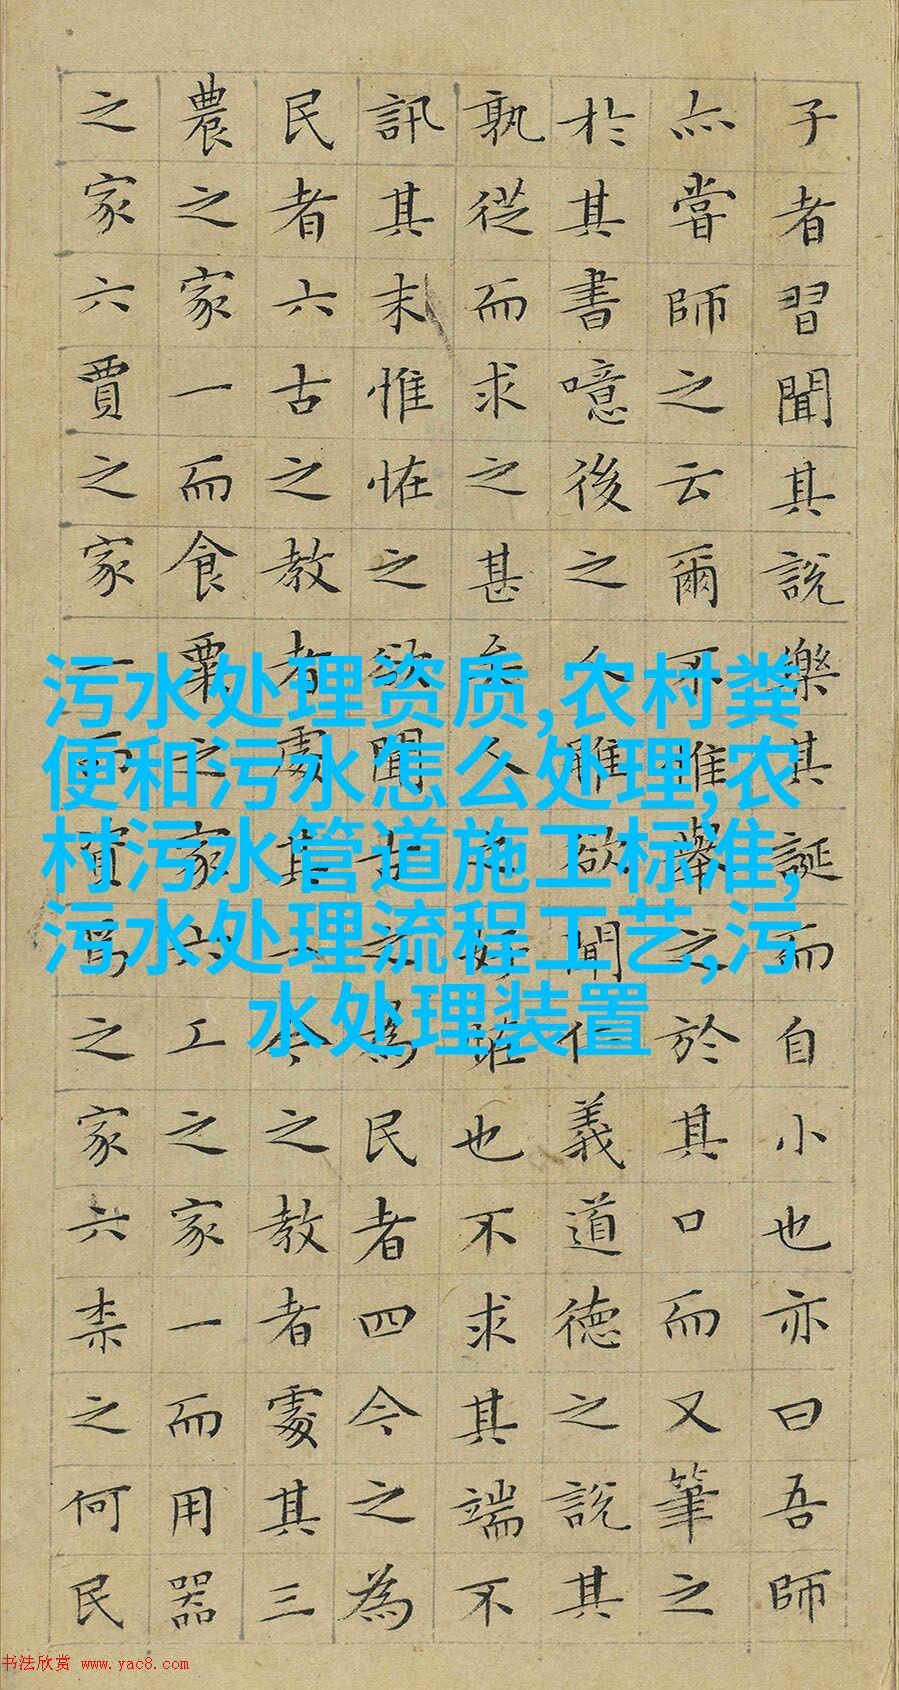 子者習聞其說樂其誕而自小也亦曰吾師
亦嘗師之云爾不惟舉之於其口而又筆之
於其書噫後之人雖欲聞仁義道德之說其
孰從而求之甚矣人之好怪也不求其端不
訊其末惟怪之欲聞古之為民者四今之為
民者六古之教者處其一今之教者處其三
農之家一而食粟之家六工之家一而用器
之家六賈之家一而資焉之家六柰之何民
污水处理资质,农村粪
便和污水怎么处理,农
村污水管道施工标准,
污水处理流程工艺,污
水处理装置
书法欣赏 www.yac8.com